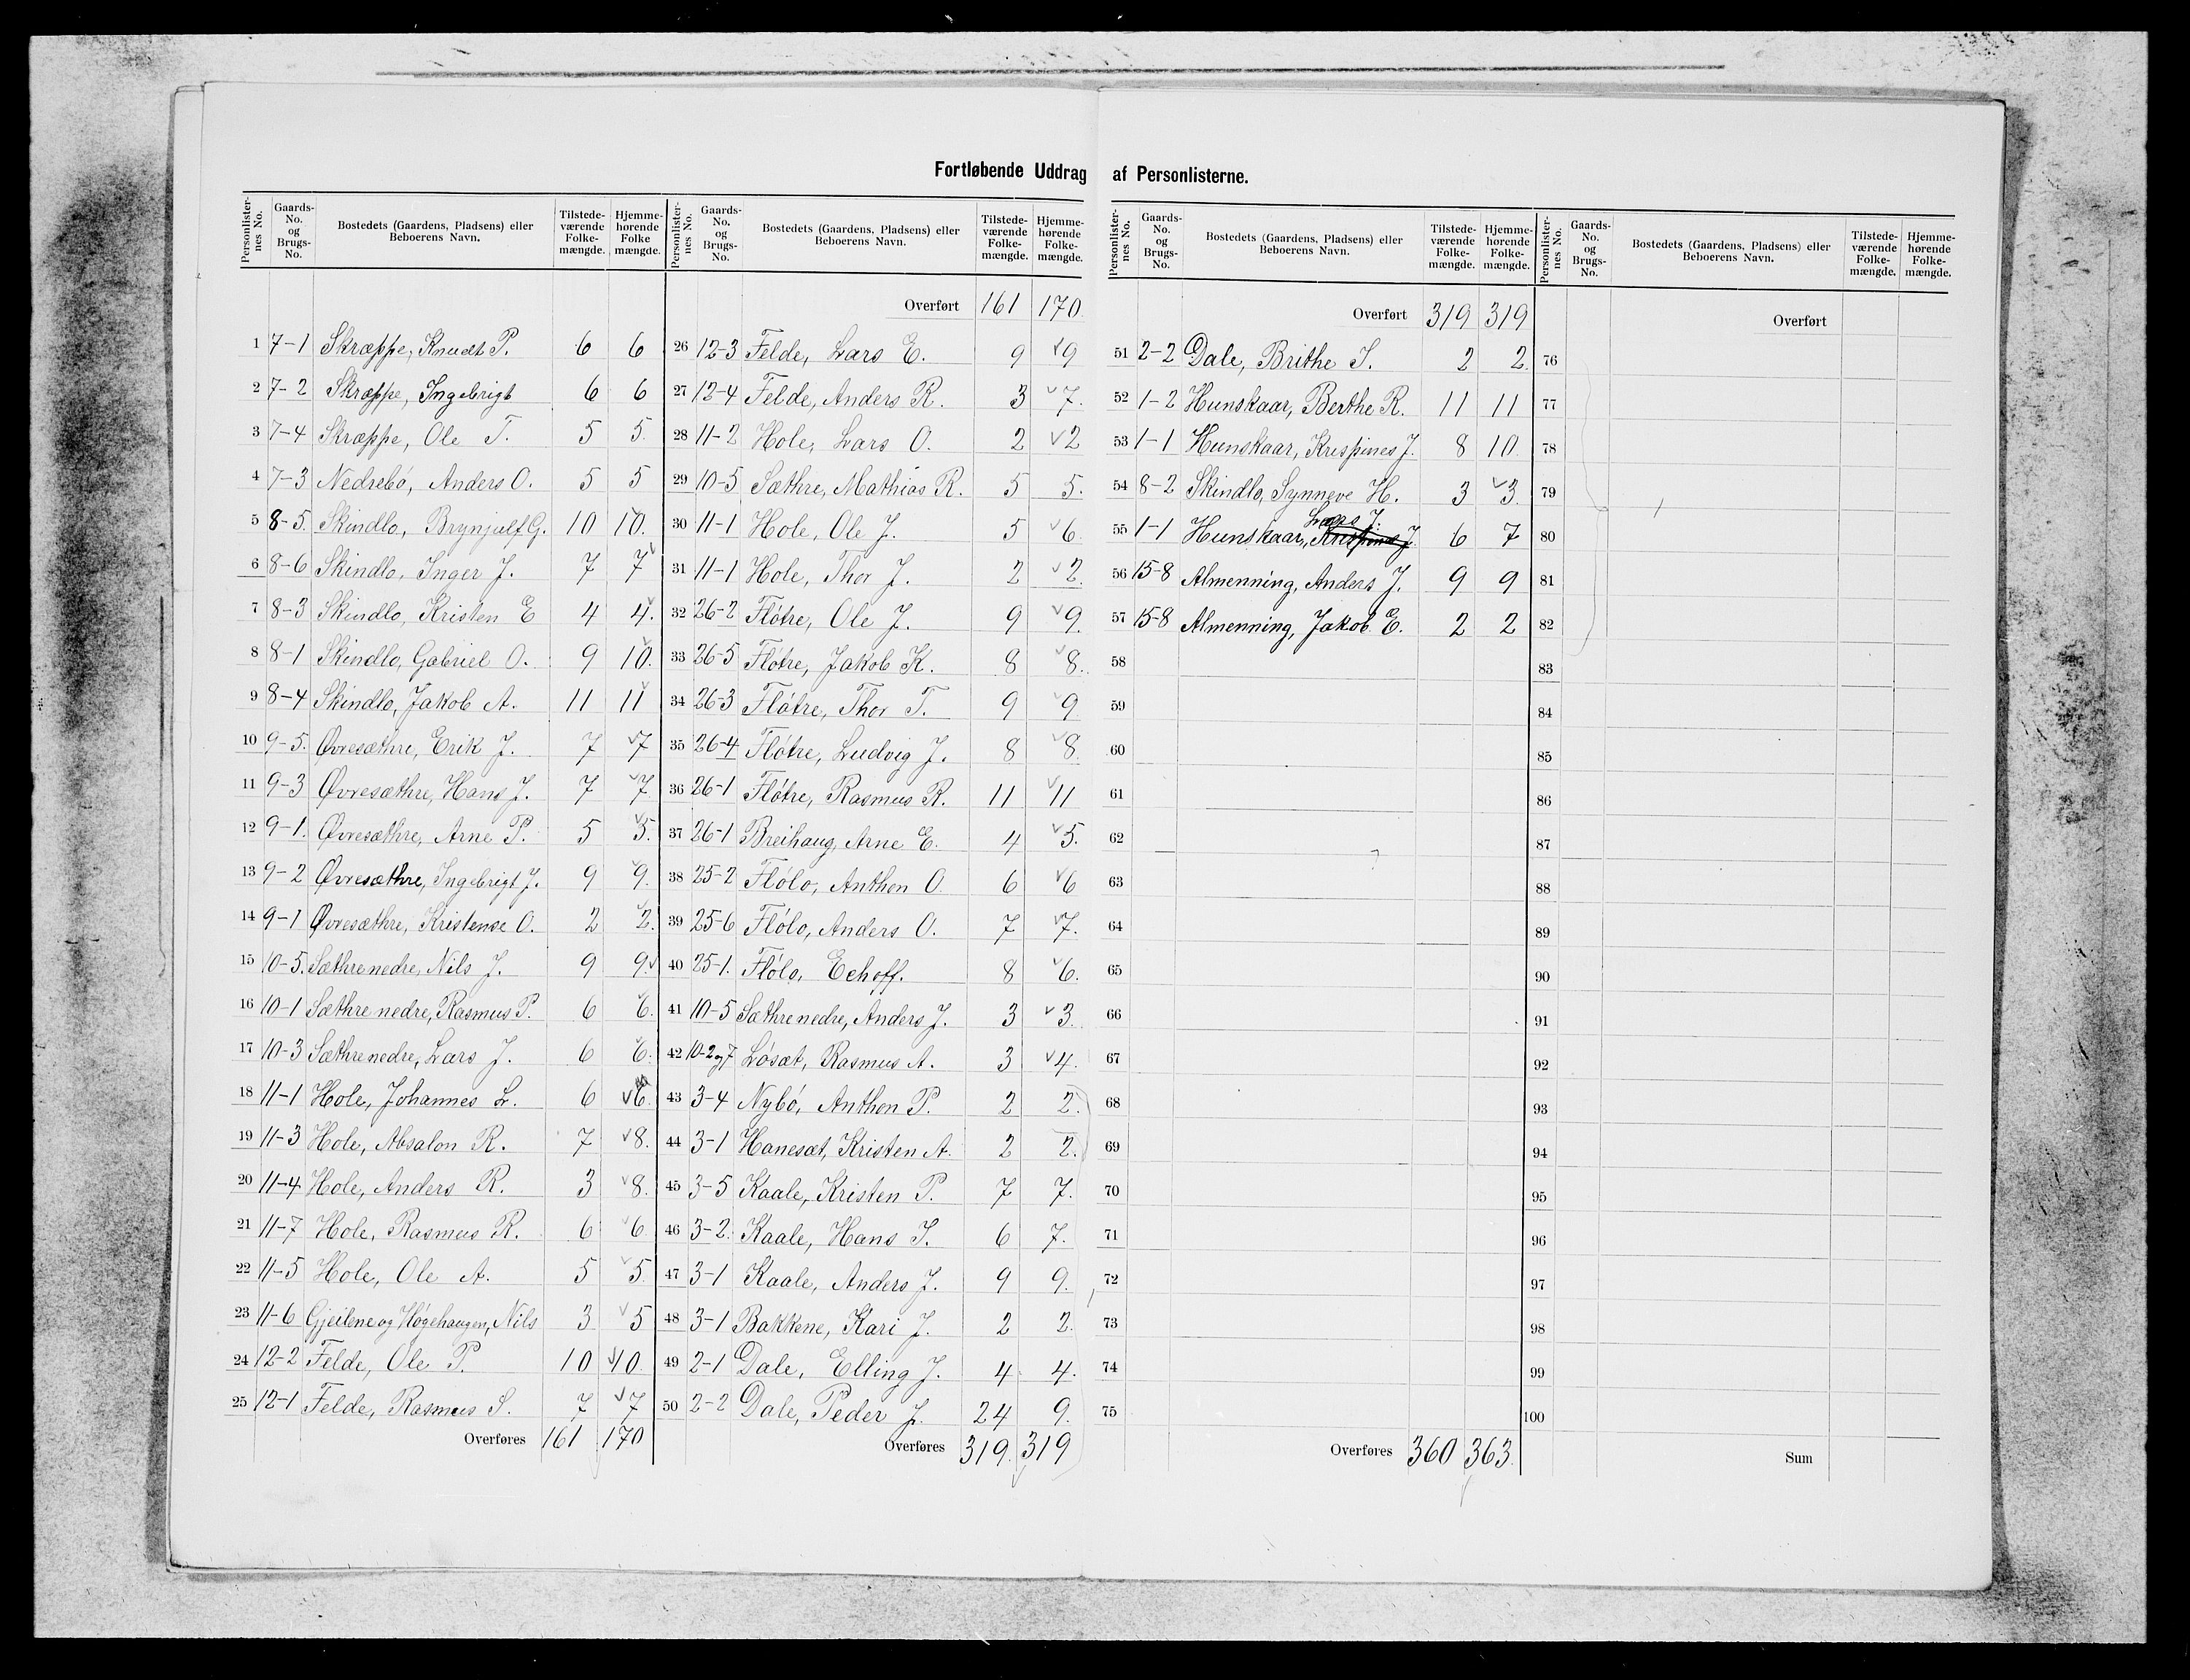 Fortløbende Uddrag af Personlisterne.
Personlisternes No. Gaards-No. og Brugs-No. Bostedets (Gaardens, Pladsens) eller Beboerens Navn. Tilstedeværende Folkemængde. Hjemmehørende Folkemængde.
1 7-1 Skræppe, Knudt P. 6 6
2 7-2 Skræppe, Ingebrigt 6 6
3 7-4 Skræppe, Ole T. 5 5.
4 7-3 Nedrebö, Anders O. 5 5
5 8-5. Skindlo, Brynjulf G. 10 10.
6 8-6 Skindlo, Inger J. 7 7
7 8-3 Skindlo, Kristen E 4 4.
8 8-1 Skindlo, Gabriel O. 9 10.
9 8-4 Skindlo, Jakob A. 11 11
10 9-5. Øvresæthre, Erik J. 7 7
11 9-3 Øvresæthre, Hans J. 7 7
12 9-1. Øvresæthre, Arne P. 5 5.
13 9-2 Øvresæthre, Ingebrigt J. 9 9.
14 9-1 Øvresæthre, Kristense O. 2 2.
15 10-5. Sæthrenedre, Nils J. 9 9.
16 10-1 Sæthrenedre, Rasmus P. 6 6.
17 10-3 Sæthrenedre, Lars J. 6 6.
18 11-1 Hole, Johannes L. 6 6.
19 11-3 Hole, Absalon R. 7 8.
20 11-4 Hole, Anders R. 3 8.
21 11-7 Hole, Rasmus R. 6 6
22 11-5 Hole, Ole A. 5 5.
23 11-6 Gjeilene og Høgehaugen, Nils 3 5
24 12-2 Felde, Ole P. 10 10.
25 12-1 Felde, Rasmus S. 7 7
Overføres 161 170
Personlisternes No. Gaards-No. og Brugs-No. Bostedets (Gaardens, Pladsens) eller Beboerens Navn. Tilstedeværende Folkemængde. Hjemmehørende Folkemængde.
Overført 161 170.
26 12-3 Felde, Lars E. 9 9
27 12-4 Felde, Anders R. 3 7.
28 11-2 Hole, Lars O. 2 2
29 10-5 Sæthre, Mathias R. 5 5.
30 11-1 Hole, Ole J. 5 6.
31 11-1 Hole, Thor J. 2 2.
32 26-2 Flötre, Ole J. 9 9.
33 26-5 Flötre, Jakob K. 8 8.
34 26-3 Flötre, Thor T. 9 9
35 26-4 Flötre, Ludvig J. 8 8.
36 26-1 Flötre, Rasmus R. 11 11
37 26-1 Breihaug, Arne E. 4 5.
38 25-2 Flölo, Anthon O. 6 6
39 25-6 Flölo, Anders O. 7 7.
40 25-1. Flölo, Echoff. 8 6.
41 10-5 Sæthrenedre, Anders J. 3 3.
42 10-2 og 7 Lösæt, Rasmus A. 3 4.
43 3-4 Nybö, Anthon P. 2 2.
44 3-1 Hanesæt, Kristen A. 2 2.
45 3-5 Kaale, Kristen P. 7 7.
46 3-2. Kaale, Hans S. 6 7.
47 3-1 Kaale, Anders J. 9 9.
48 3-1 Bakkene, Kari J. 2 2.
49 2-1 Dale, Elling J. 4 4.
50 2-2 Dale, Peder J. 24 9.
Overføres 319. 319
Personlisternes No. Gaards-No. og Brugs-No. Bostedets (Gaardens, Pladsens) eller Beboerens Navn. Tilstedeværende Folkemængde. Hjemmehørende Folkemængde.
Overført 319 319
51 2-2 Dale, Brithe S. 2 2.
52 1-2 Hunskaar, Berthe R. 11 11
53 1-1 Hunskaar, Krispines J. 8 10.
54 8-2 Skindlo, Synneve H. 3 3.
Lars J.
55 1-1 Hunskaar, Krispines J. 6 7
56 15-8 Almenning, Anders J. 9 9
57 15-8 Almenning, Jakob E. 2 2
58
59
60
61
62
63
64
65
66
67
68
69
70
71
72
73
74
75
Overføres 360 363.
Personlisternes No. Gaards-No. og Brugs-No. Bostedets (Gaardens, Pladsens) eller Beboerens Navn. Tilstedeværende Folkemængde. Hjemmehørende Folkemængde.
Overført
76
77
78
79
80
81
82
83
84
85
86
87
88
89
90
91
92
93
94
95
96
97
98
99
100
Sum